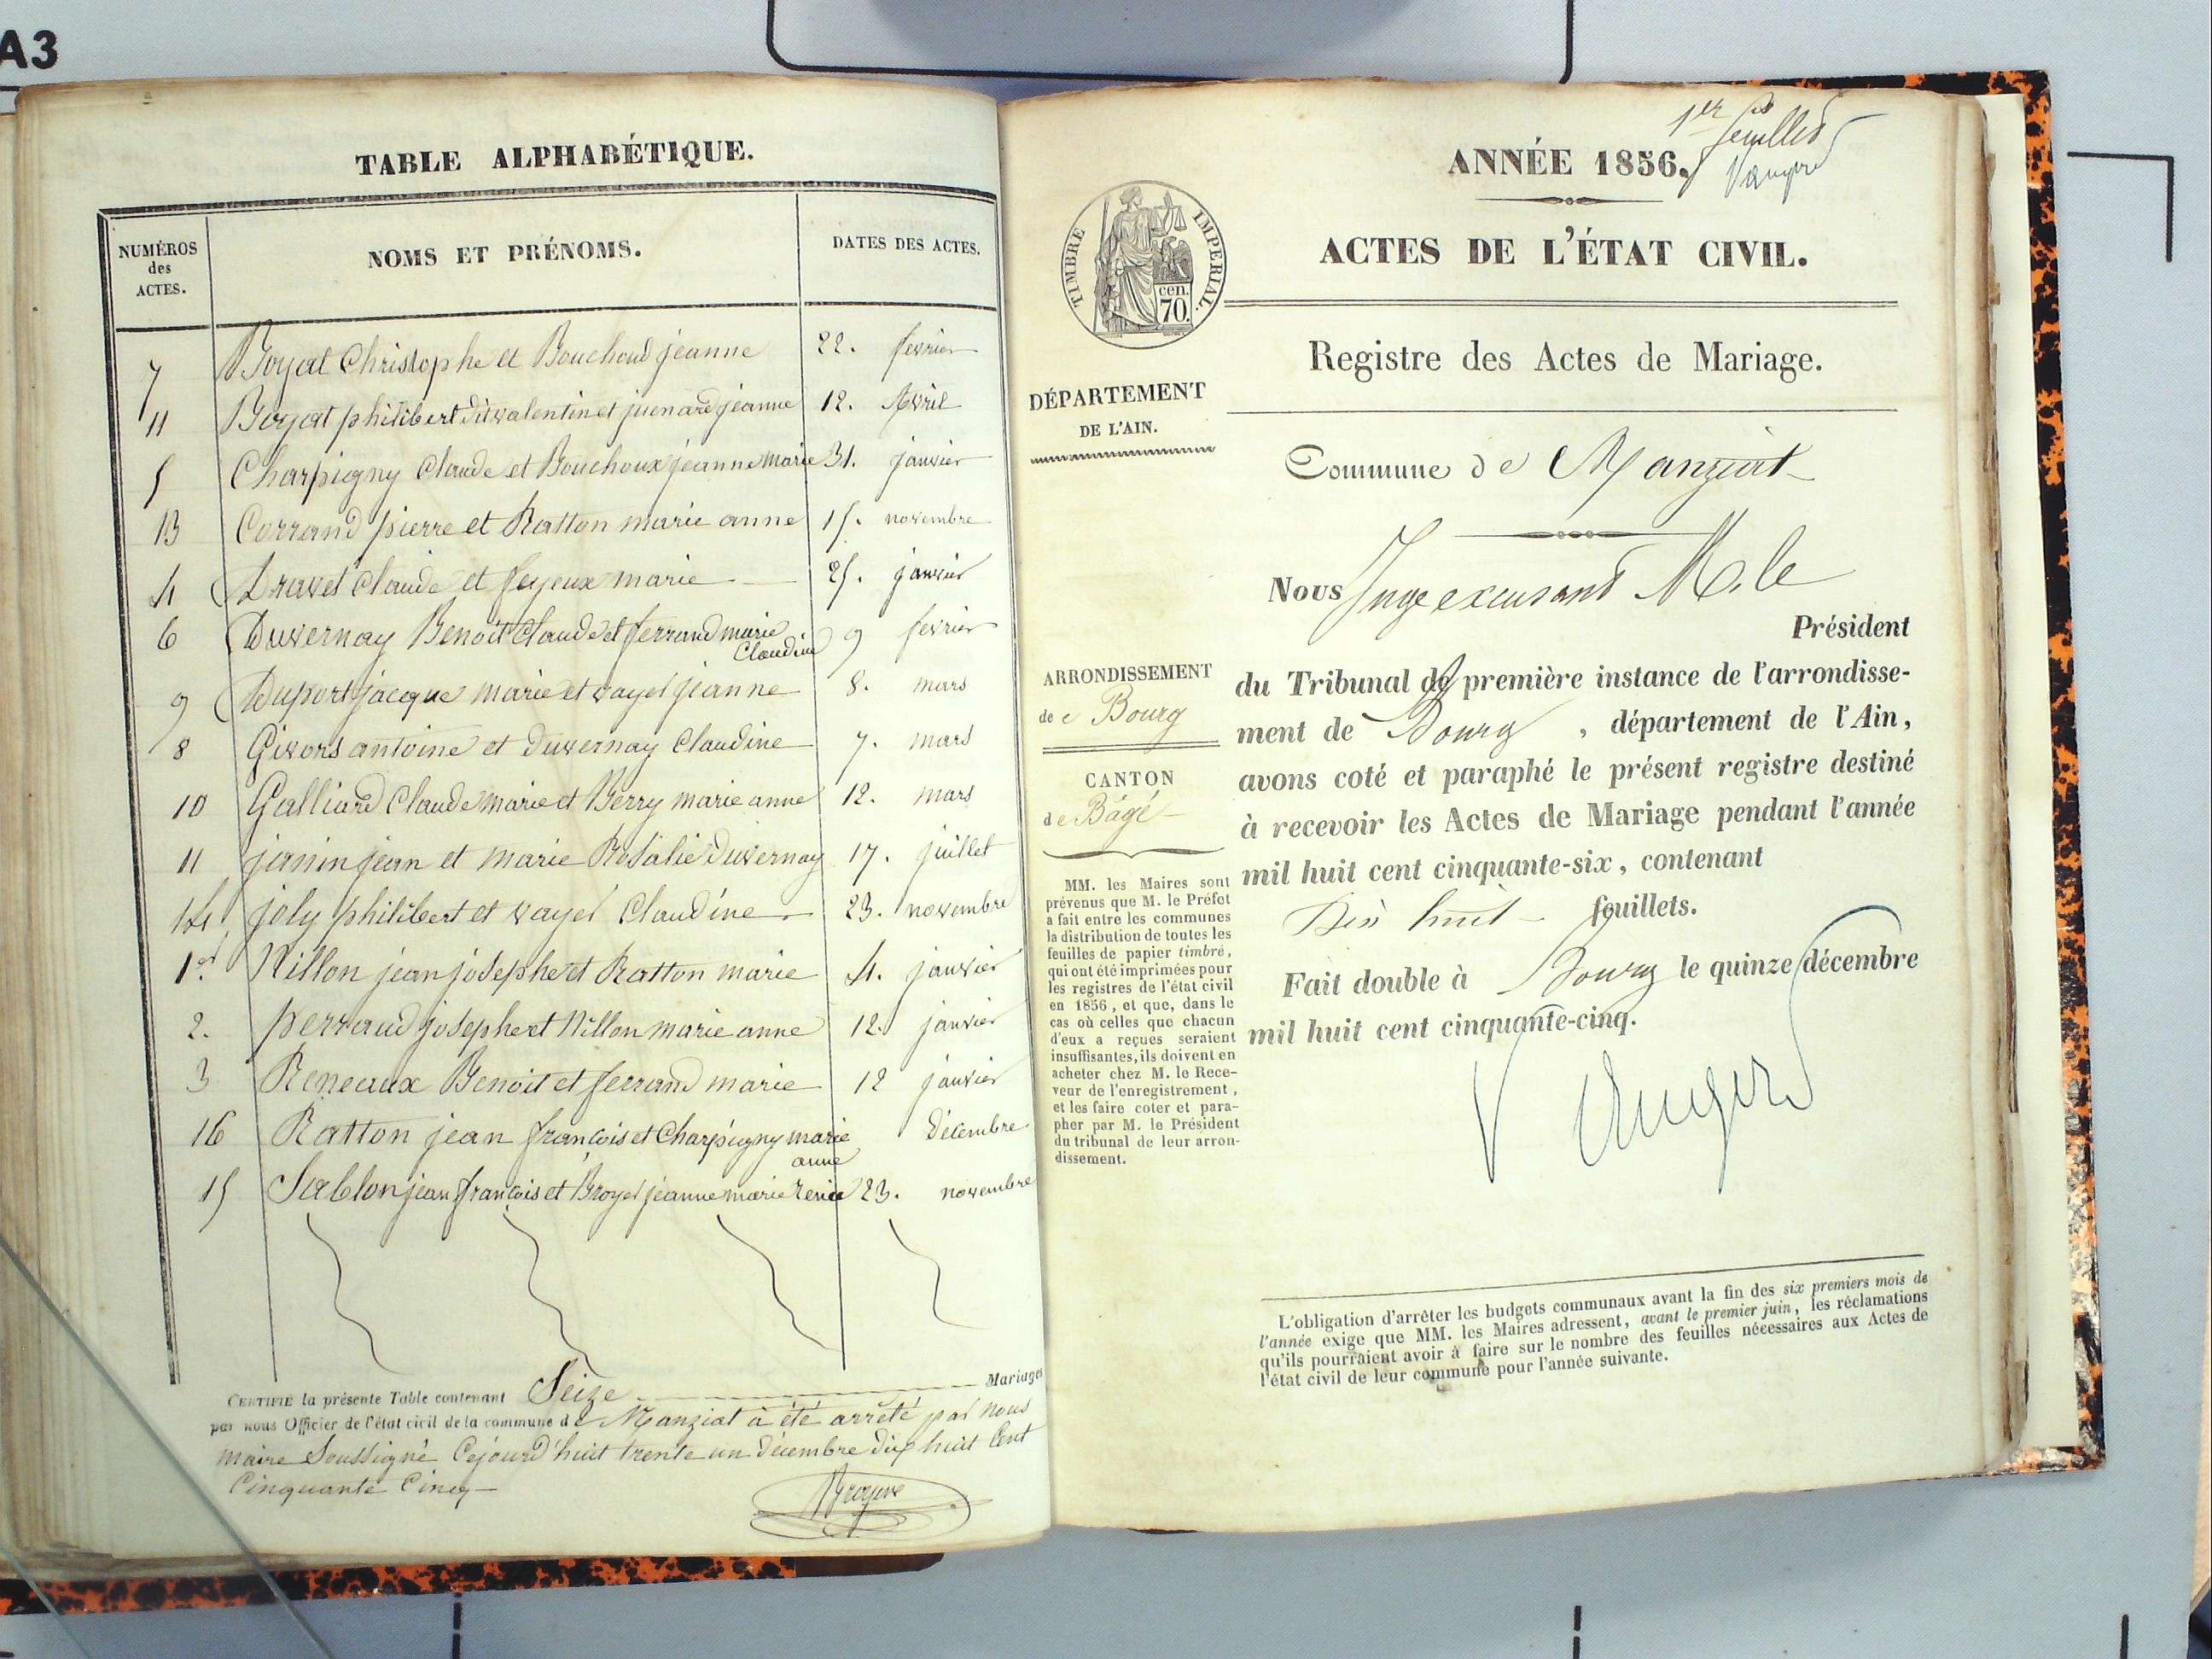 A3
TABLE ALPHABÉTIQUE.
NUMÉROS des ACTES. NOMS ET PRÉNOMS. DATES DES ACTES.
7 Boyat Christophe et Bouchoud jeanne 22. fevrier
11 Boyat philibert dit valentin et juenard jeanne 12. Avril
5 Charpigny Claude et Bouchoux jeanne Marie 31. janvier
13 Corrand pierre et Ratton marie anne 15. novembre
4 Dravet Claude et feyeux marie 25. janvier
6 Duvernay Benoit Claude et ferrand marie Claudine 9 fevrier
9 Duport jacque marie et vayet jeanne 8. mars
8 Givors antoine et Duvernay Claudine 7. mars
10 Galliard Claude Marie et Berry marie anne 12. mars
11 janin jean et marie Rosalie Duvernay 17. juillet
14 joly philibert et vayet Claudine 23. novembre
1er Nillon jean josephe et Ratton marie 4. janvier
2. perraud josephe et Nillon marie anne 12. janvier
3 Reneaux Benoit et ferrand marie 12 janvier
16 Ratton jean françois et Charpigny marie anne décembre
15 Sablon jean françois et Broyer jeanne marie 23. novembre
CERTIFIÉ la présente Table contenant Seize Mariages
par nous Officier de l'état civil de la commune de Manziat à été arrêté par nous
maire Soussigné Cejourd'huit trente un décembre dix huit Cent
Cinquante Cinq
1er feuillet
ANNÉE 1856.
ACTES DE L'ÉTAT CIVIL.
TIMBRE IMPERIAL.
cen. 70.
Registre des Actes de Mariage.
DÉPARTEMENT
DE L'AIN.
Commune de Manziat
Nous Juge M. le
Président
du Tribunal de première instance de l'arrondisse-
ment de Bourg, département de l'Ain,
avons coté et paraphé le présent registre destiné
à recevoir les Actes de Mariage pendant l'année
mil huit cent cinquante-six, contenant
Dix huit feuillets.
Fait double à Bourg le quinze décembre
mil huit cent cinquante-cinq.
ARRONDISSEMENT
de Bourg
CANTON
de Bâgé
MM. les Maires sont
prévenus que M. le Préfet
a fait entre les communes
la distribution de toutes les
feuilles de papier timbré,
qui ont été imprimées pour
les registres de l'état civil
en 1856, et que, dans le
cas où celles que chacun
d'eux a reçues seraient
insuffisantes, ils doivent en
acheter chez M. le Rece-
veur de l'enregistrement,
et les faire coter et para-
pher par M. le Président
du tribunal de leur arron-
dissement.
L'obligation d'arrêter les budgets communaux avant la fin des six premiers mois de
l'année exige que MM. les Maires adressent, avant le premier juin, les réclamations
qu'ils pourraient avoir à faire sur le nombre des feuilles nécessaires aux Actes de
l'état civil de leur commune pour l'année suivante.